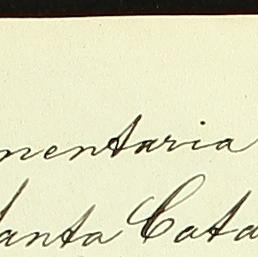 mentaria
Santa Cata